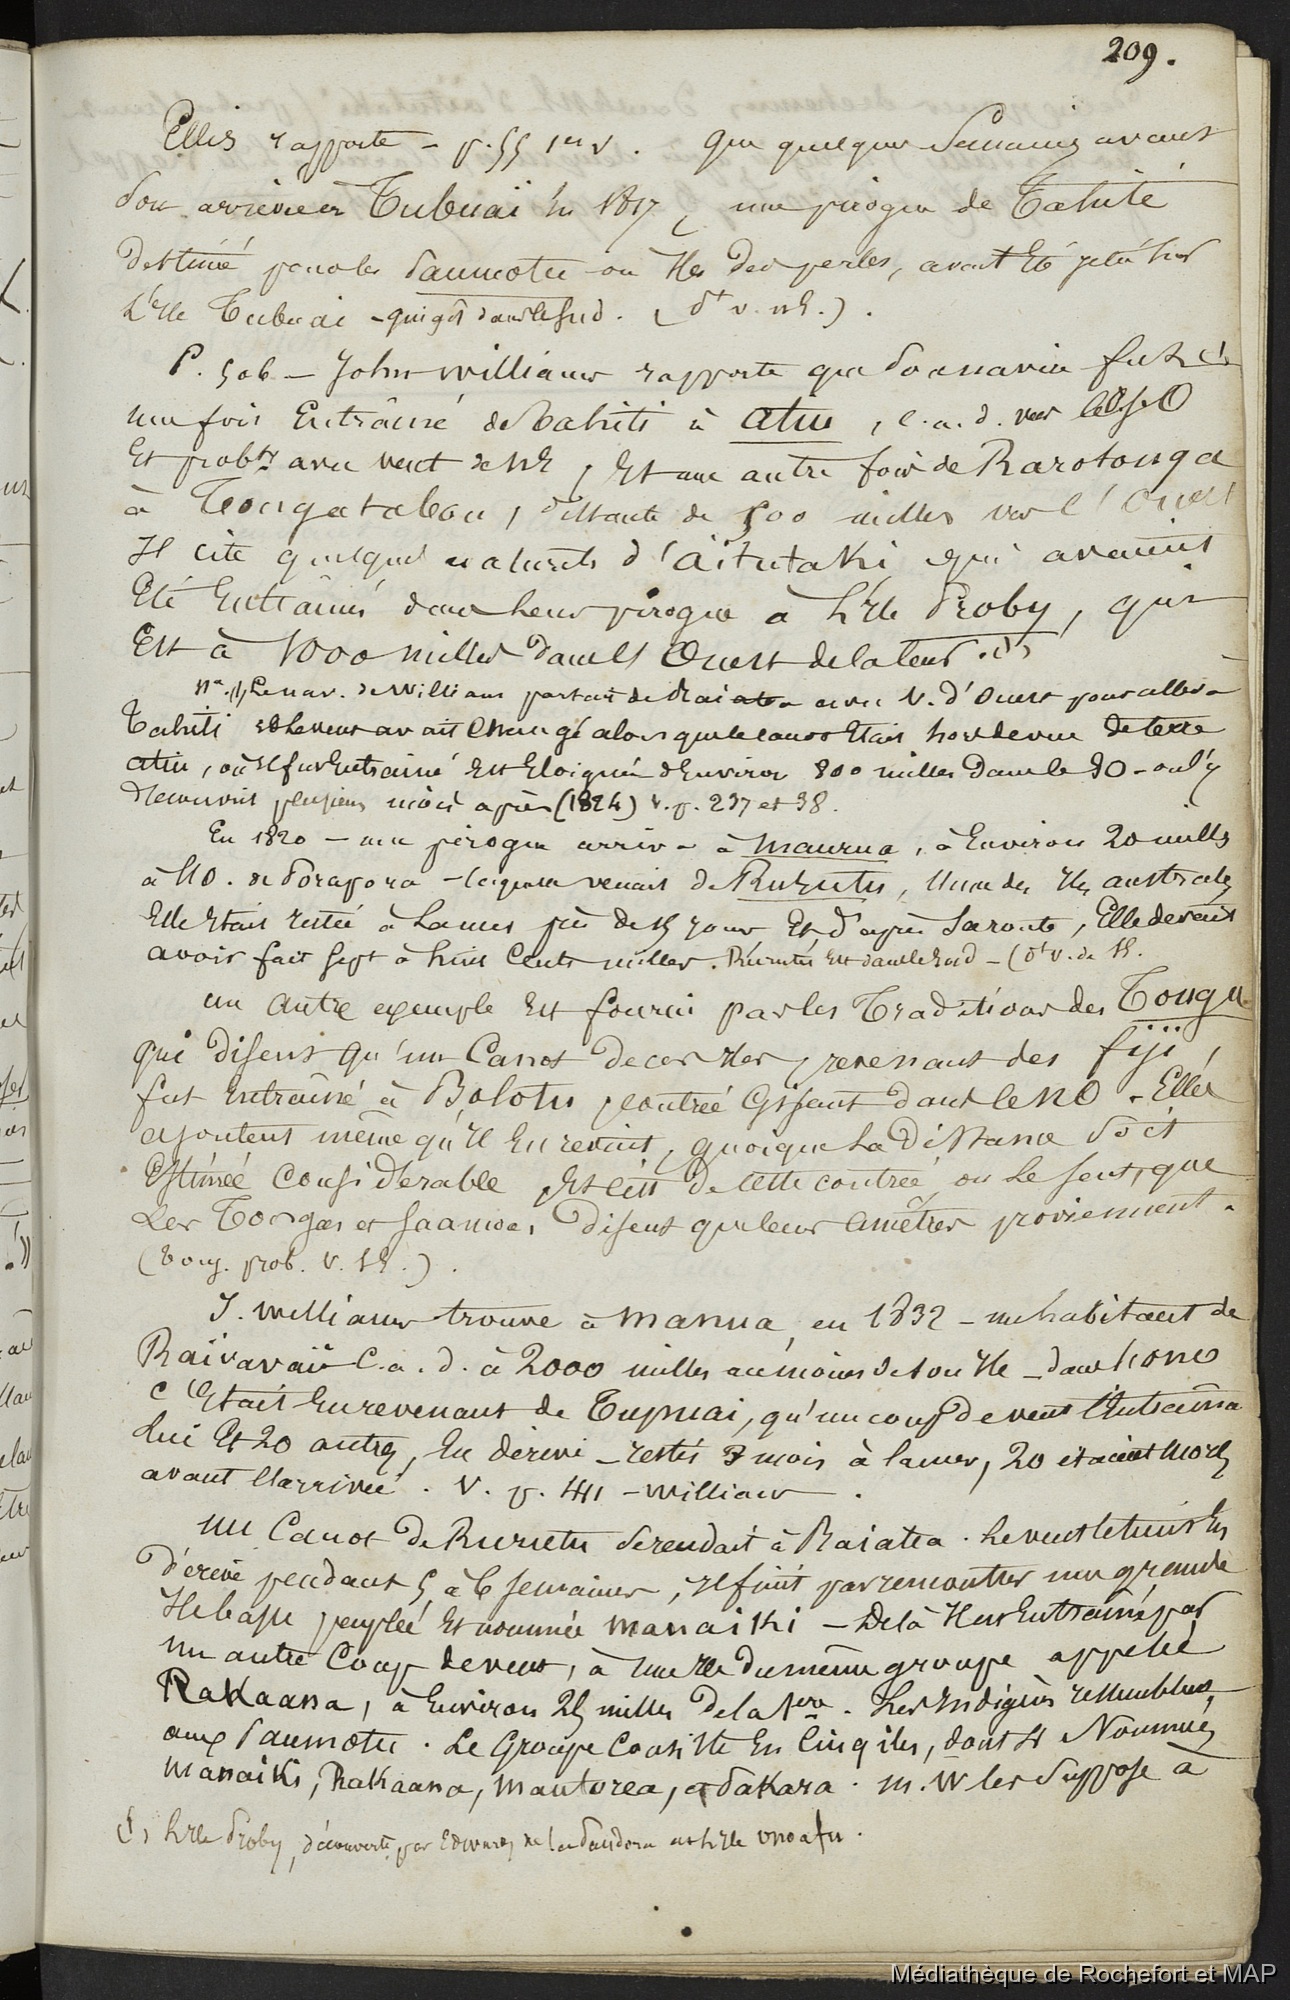 209.
Ellis rapporte - p. 55 1er v. que quelques Semaines avant
son arrivée à Tubuaï en 1817, une pirogue de Tahiti
destinée pour les Paumotu ou Iles des perles, avait été jetée sur
l'Ile Tubuai - qui gît dans le Sud. (dt v. NE.).
P. 506 - John Williams rapporte que son navire fut
une fois Entraîné de Tahiti à Atiu, c.a.d. vers l'O
Et probt avec vent de NE, Et une autre fois de Rarotonga
à Tongatabou, distante de 500 milles vers l'Ouest
Il cite quelques naturels d'aitutaki qui avaient
Eté Entraînés dans leur pirogue à l'Ile Proby, qui
Est à 1000 milles dans l'Ouest de la leur. (1)
Na. (1) Le nav. de Williams partait de Raiatea avec V. d'Ouest pour aller à
Tahiti et le vent avait Changé alors que le navire Etait hors de vue de terre
atiu, où Il fut Entrainé Est Eloignée d'Environ 800 milles dans le SO - on l'y
découvrit plusieurs mois après (1824) v. p. 237 et 38.
En 1820 - une pirogue arriva à maurua, à Environ 20 milles
à l'O. de Borapora - laquelle venait de Rurutu, l'une des Iles australes
Elle Etait restée à la mer près de 15 jours Et d'après sa route, Elle devait
avoir fait Sept à huit Cents milles. Rurutu Est dans le Sud - (dt v. de SE.
un autre exemple Est fourni par les Traditions des Tonga
qui disent qu'un Canot de ces Iles, revenant des fiji,
fut Entraîné à Bolotu, contrée Gisant dans le NO. Elles
ajoutent même qu'Il En revint, quoique la distance soit
Estimée Considérable, Et c'est de cette contrée ou le sent, que
Les Tongas et Saamoa, disent que leurs ancêtres proviennent.
(Tong. prob. v. SE.).
J. Williams trouva à Manua, en 1832 - un habitant de
Raïvavaïi C.a.d. à 2000 milles au moins de son Ile - dans l'ONO
C'Etait En revenant de Tupuai, qu'un coup de vent l'Entraîna
lui Et 20 autres, En dérive - restés 3 mois à la mer, 20 etaient morts
avant l'arrivée. V. p. 411 - Williams.
Un Canot de Rurutu se rendait à Raiatea. Le vent le tint En
dérive pendant 5 à 6 semaines, Il finit par rencontrer une grande
Ile basse peuplée Et nommée manaiki - De là Il est Entraîné par
un autre Coup de vent, à une Ile du même groupe appelée
Rakaana, à Environ 25 milles de la 1ère. Les Indigènes ressemblent
aux Paumotu. Le Groupe Consiste En Cinq iles, dont 4 Nommées
Manaiki, Rakaana, Mautorea, et Pakara. M. W les suppose à
(1) L'Ile Proby, découverte par Edwards de la Pandora est l'Ile Onoafu.
Médiathèque de Rochefort et MAP